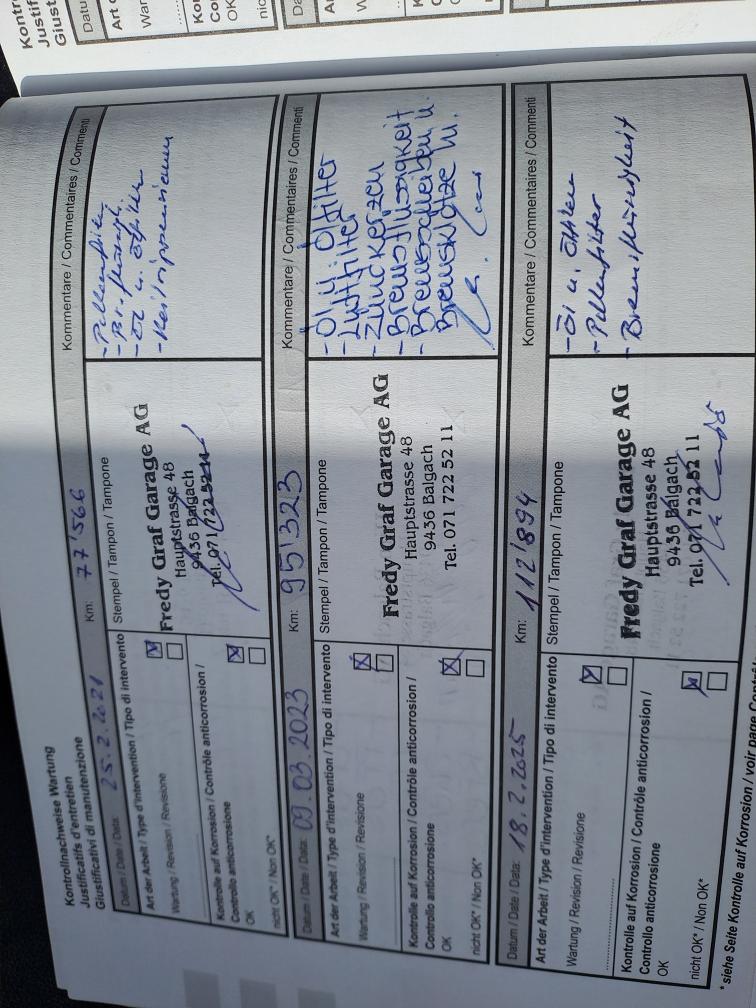 Kontrollnachweise Wartung
Justificatifs d'entretien
Giustificativi di manutenzione
Datum / Date / Data: 25.2.2021 Km: 77'566
Art der Arbeit / Type d'intervention / Tipo di intervento
Wartung / Revision / Revisione
Kontrolle auf Korrosion / Contrôle anticorrosion /
Controllo anticorrosione
OK
nicht OK* / Non OK*
Stempel / Tampon / Tampone
Fredy Graf Garage AG
Hauptstrasse 48
9436 Balgach
Tel. 071 722 52 11
Kommentare / Commentaires / Commenti
- Pollenfilter
- Br.flüssigk.
- Öl u. Ölfilter
- Keilrippenriemen
Datum / Date / Data: 09.03.2023 Km: 95'323
Art der Arbeit / Type d'intervention / Tipo di intervento
Wartung / Revision / Revisione
Kontrolle auf Korrosion / Contrôle anticorrosion /
Controllo anticorrosione
OK
nicht OK* / Non OK*
Stempel / Tampon / Tampone
Fredy Graf Garage AG
Hauptstrasse 48
9436 Balgach
Tel. 071 722 52 11
Kommentare / Commentaires / Commenti
- Öl u. Ölfilter
- Luftfilter
- Zündkerzen
- Bremsflüssigkeit
- Bremsscheiben u.
Bremsklötze
Datum / Date / Data: 18.2.2025 Km: 112'894
Art der Arbeit / Type d'intervention / Tipo di intervento
Wartung / Revision / Revisione
Kontrolle auf Korrosion / Contrôle anticorrosion /
Controllo anticorrosione
OK
nicht OK* / Non OK*
Stempel / Tampon / Tampone
Fredy Graf Garage AG
Hauptstrasse 48
9436 Balgach
Tel. 071 722 52 11
Kommentare / Commentaires / Commenti
- Öl u. Ölfilter
- Pollenfilter
- Bremsflüssigkeit
* siehe Seite Kontrolle auf Korrosion / voir page